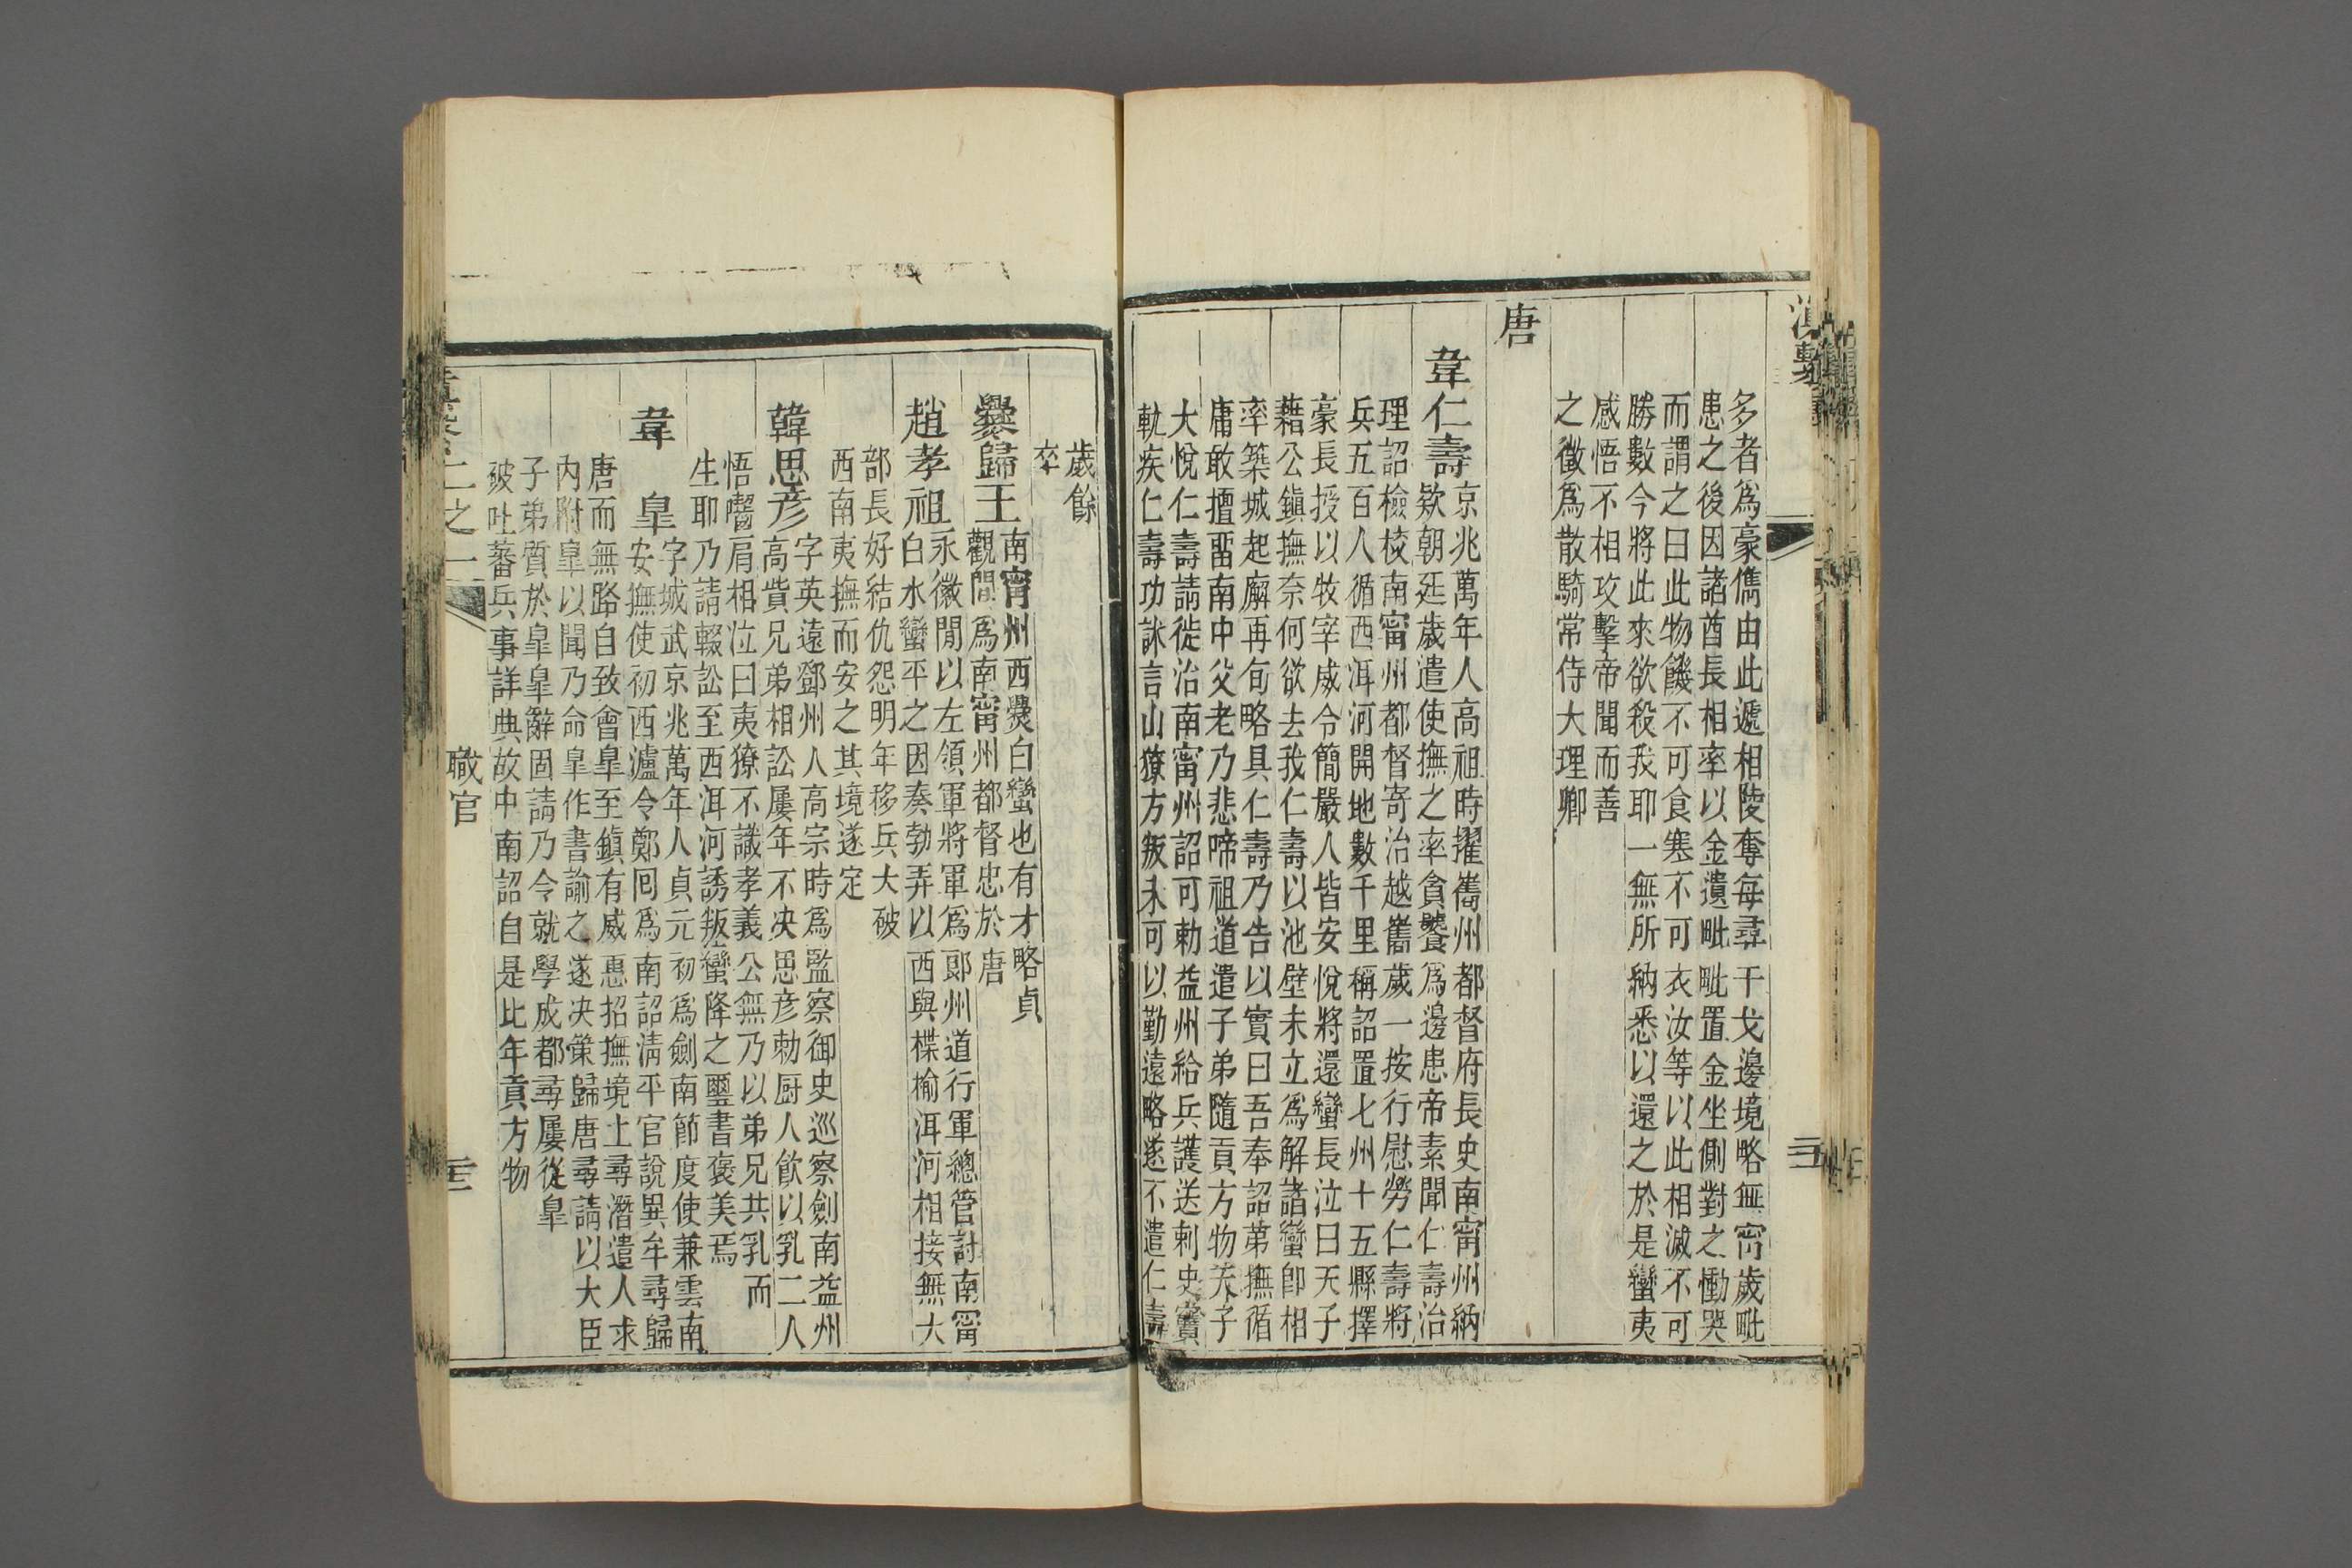 滇繫
多者爲豪儁由此遞相陵奪每尋干戈邊境略無甯歲毗
患之後因諸酋長相率以金遺毗毗置金坐側對之慟哭
而謂之曰此物饑不可食寒不可衣汝等以此相滅不可
勝數今將此來欲殺我耶一無所納悉以還之於是蠻夷
感悟不相攻擊帝聞而善
之徵爲散騎常侍大理卿
唐
韋仁壽京兆萬年人高祖時擢嶲州都督府長史南甯州納
欵朝廷歲遣使撫之率貪饕爲邊患帝素聞仁壽治
理詔檢校南甯州都督寄治越嶲歲一按行慰勞仁壽將
兵五百人循西洱河開地數千里稱詔置七州十五縣擇
豪長授以牧宰威令簡嚴人皆安悅將還蠻長泣曰天子
藉公鎮撫奈何欲去我仁壽以池壁未立爲解諸蠻卽相
率築城起廨再旬略具仁壽乃告以實曰吾奉詔第撫循
庸敢擅畱南中父老乃悲啼祖道遣子弟隨貢方物天子
大悅仁壽請徙治南甯州詔可勅益州給兵護送刺史竇
軌疾仁壽功訹言山獠方叛未可以勤遠略遂不遣仁壽
歲餘
卒
爨歸王南甯州西爨白蠻也有才略貞
觀閒爲南甯州都督忠於唐
趙孝祖永徽閒以左領軍將軍爲郞州道行軍總管討南甯
白水蠻平之因奏勃弄以西與楪榆洱河相接無大
部長好結仇怨明年移兵大破
西南夷撫而安之其境遂定
韓思彦字英遠鄧州人高宗時爲監察御史巡察劍南益州
高貲兄弟相訟屢年不决思彦勅厨人飮以乳二人
悟嚙肩相泣曰夷獠不識孝義公無乃以弟兄共乳而
生耶乃請輟訟至西洱河誘叛蠻降之璽書褒美焉
韋　皐字城武京兆萬年人貞元初爲劍南節度使兼雲南
安撫使初西瀘令鄭囘爲南詔淸平官說異牟尋歸
唐而無路自致會皐至鎮有威惠招撫境上尋潛遣人求
內附皐以聞乃命皐作書諭之遂决策歸唐尋請以大臣
子弟質於皐皐辭固請乃令就學成都尋屢從皐
破吐蕃兵事詳典故中南詔自是比年貢方物
二之一
職官